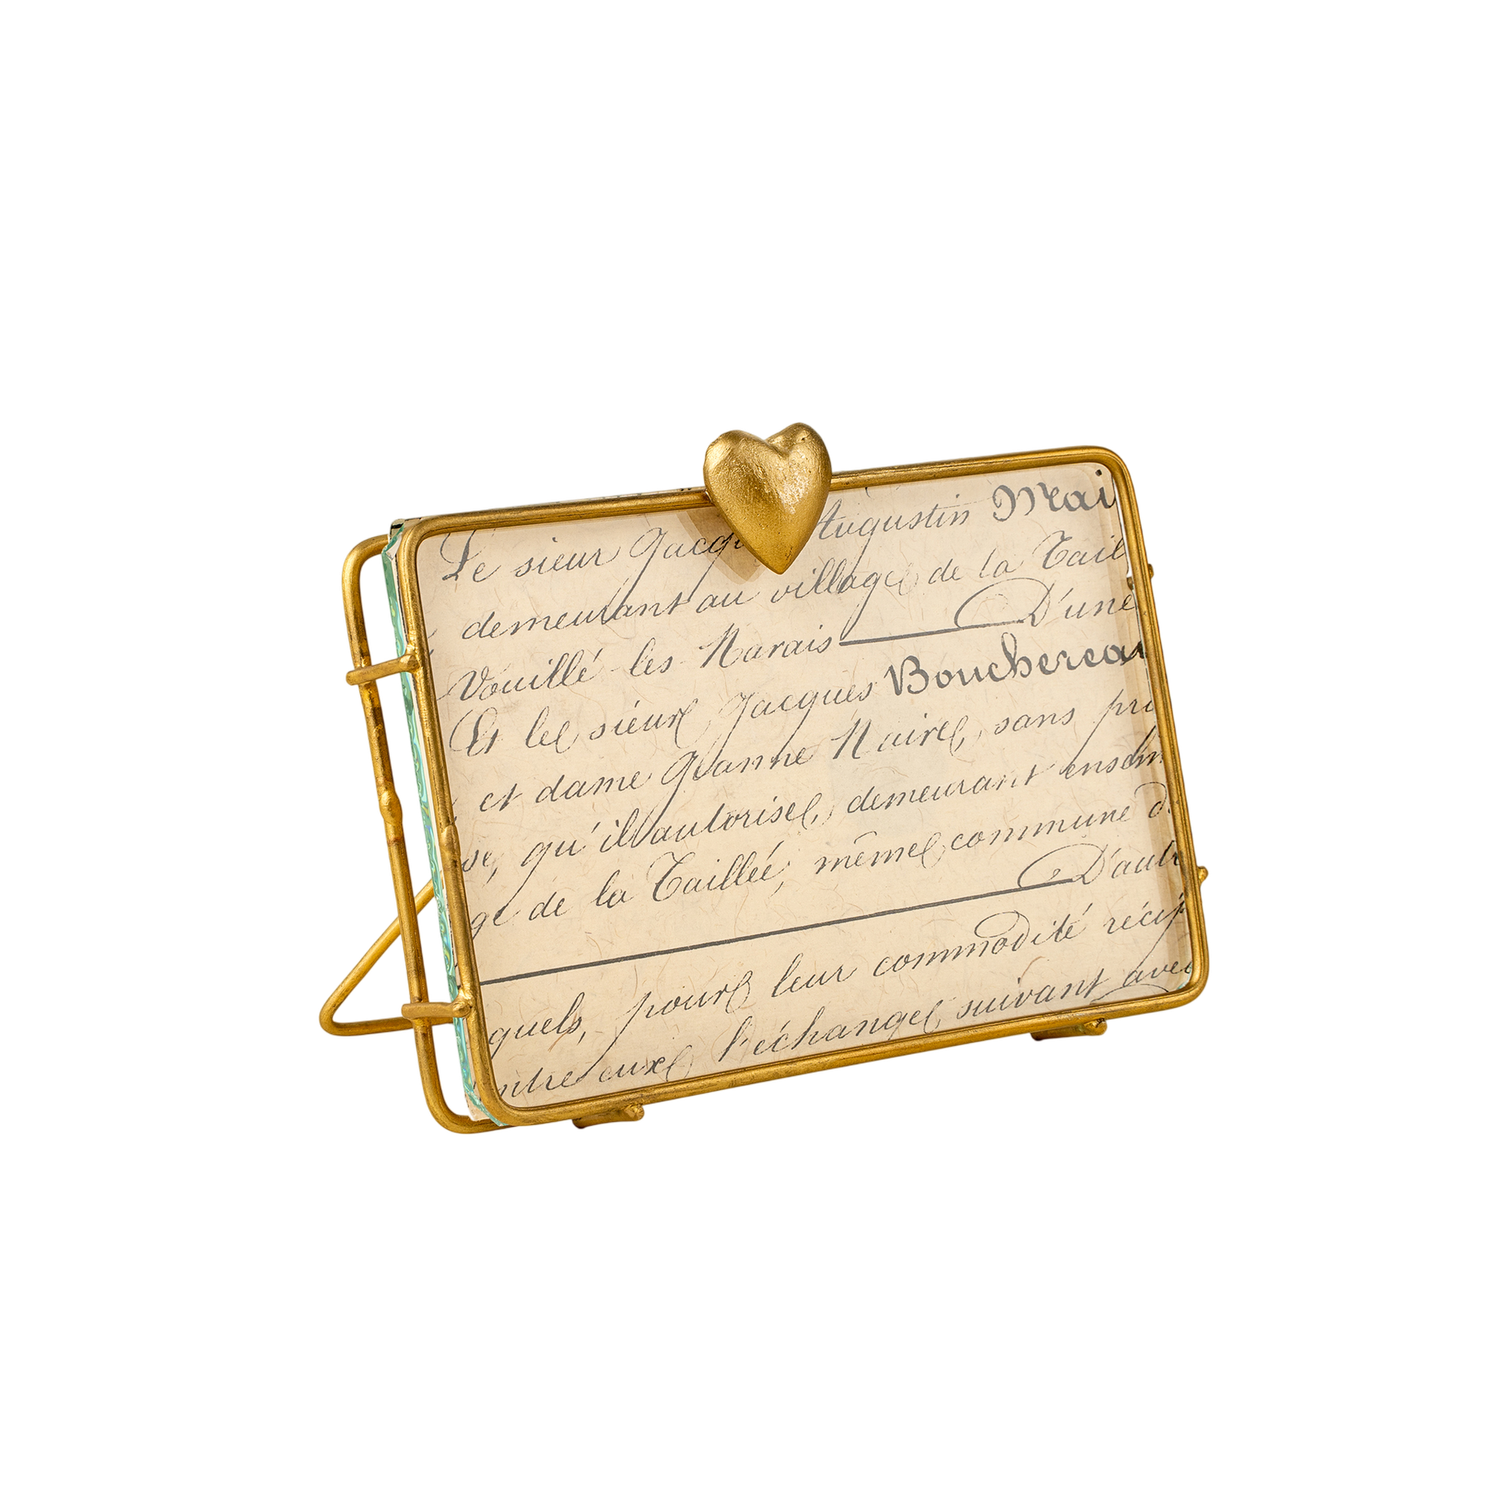 Le sieur Jacq Augustin Mai
demeurant au village de la Tail
Vouillé-les-Marais D'une
Et le sieur Jacques Bouchereau
et dame Jeanne Naire, sans pr
se, qu'il autorise, demeurant ensem
ge de la Taillée, même commune d
D'autr
quels, pour leur commodité récip
ntre eux l'échange, suivant avec